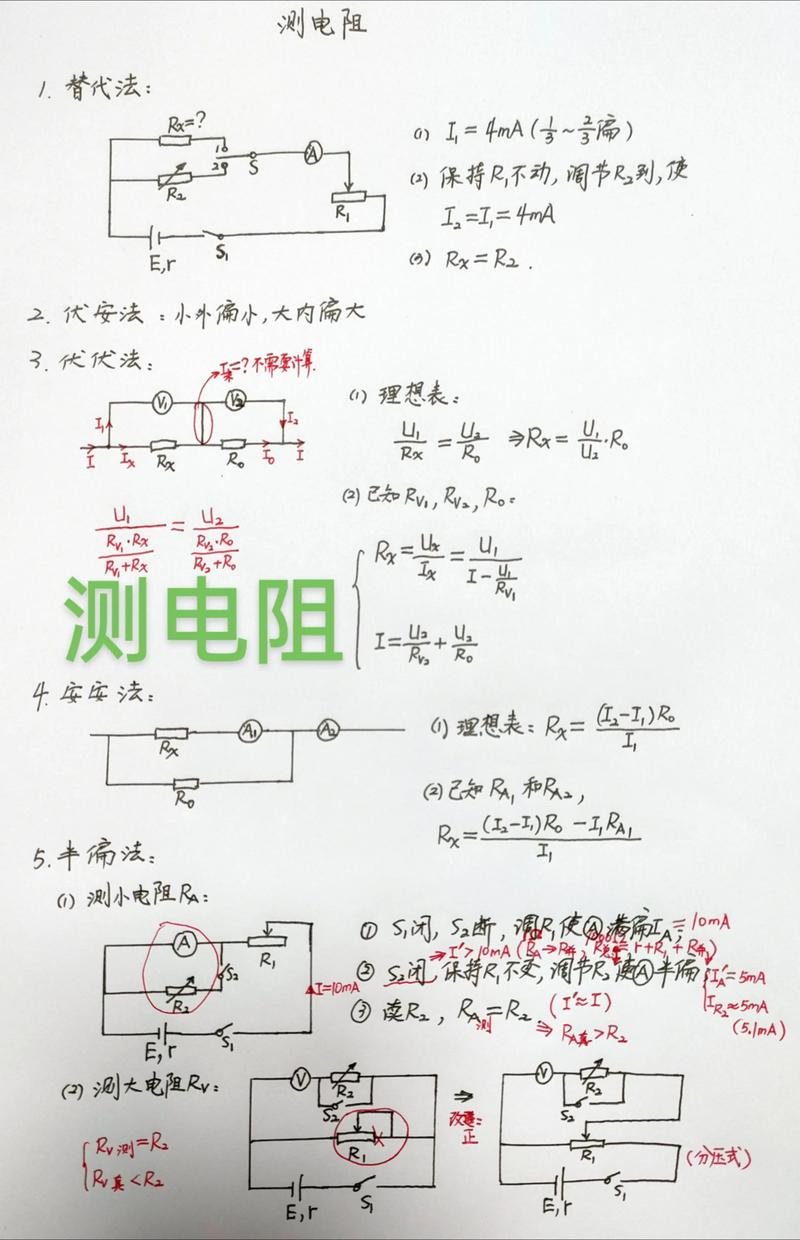 测电阻
1. 替代法：
Rx=?
1
2
S
A
R2
R1
E,r
S1
(1) I1=4mA(1/3~2/3偏)
(2) 保持R1不动，调节R2到，使
I2=I1=4mA
(3) Rx=R2.
2. 伏安法：小外偏小，大内偏大
3. 伏伏法：
=?不需要计算.
V1
V2
I1
I2
I
Ix
Rx
R0
I0
I
(1) 理想表：
U1/Rx=U2/R0 ⇒Rx=U1/U2·R0
(2) 已知RV1, RV2, R0：
U1/(RV1·Rx/(RV1+Rx))=U2/(RV2·R0/(RV2+R0))
Rx=Ux/Ix=U1/(I-U1/RV1)
I=U2/RV2+U2/R0
测电阻
4. 安安法：
Rx
A1
A2
R0
(1) 理想表：Rx=(I2-I1)R0/I1
(2) 已知RA1和RA2,
Rx=((I2-I1)R0-I1RA1)/I1
5. 半偏法：
(1) 测小电阻RA：
A
S2
R1
R2
I=10mA
E,r
S1
① S1闭，S2断，调R1使A满偏IA=10mA;
⇒I'>10mA
② S2闭，保持R1不变，调节R2使A半偏
IA'=5mA
IR2≈5mA
(5.1mA)
③ 读R2, RA测=R2.
(I'≈I)
⇒RA真>R2
(2) 测大电阻RV：
RV测=R2
RV真<R2
V
R2
S2
R1
E,r
S1
⇒
正
V
R2
S2
R1
E,r
S1
(分压式)